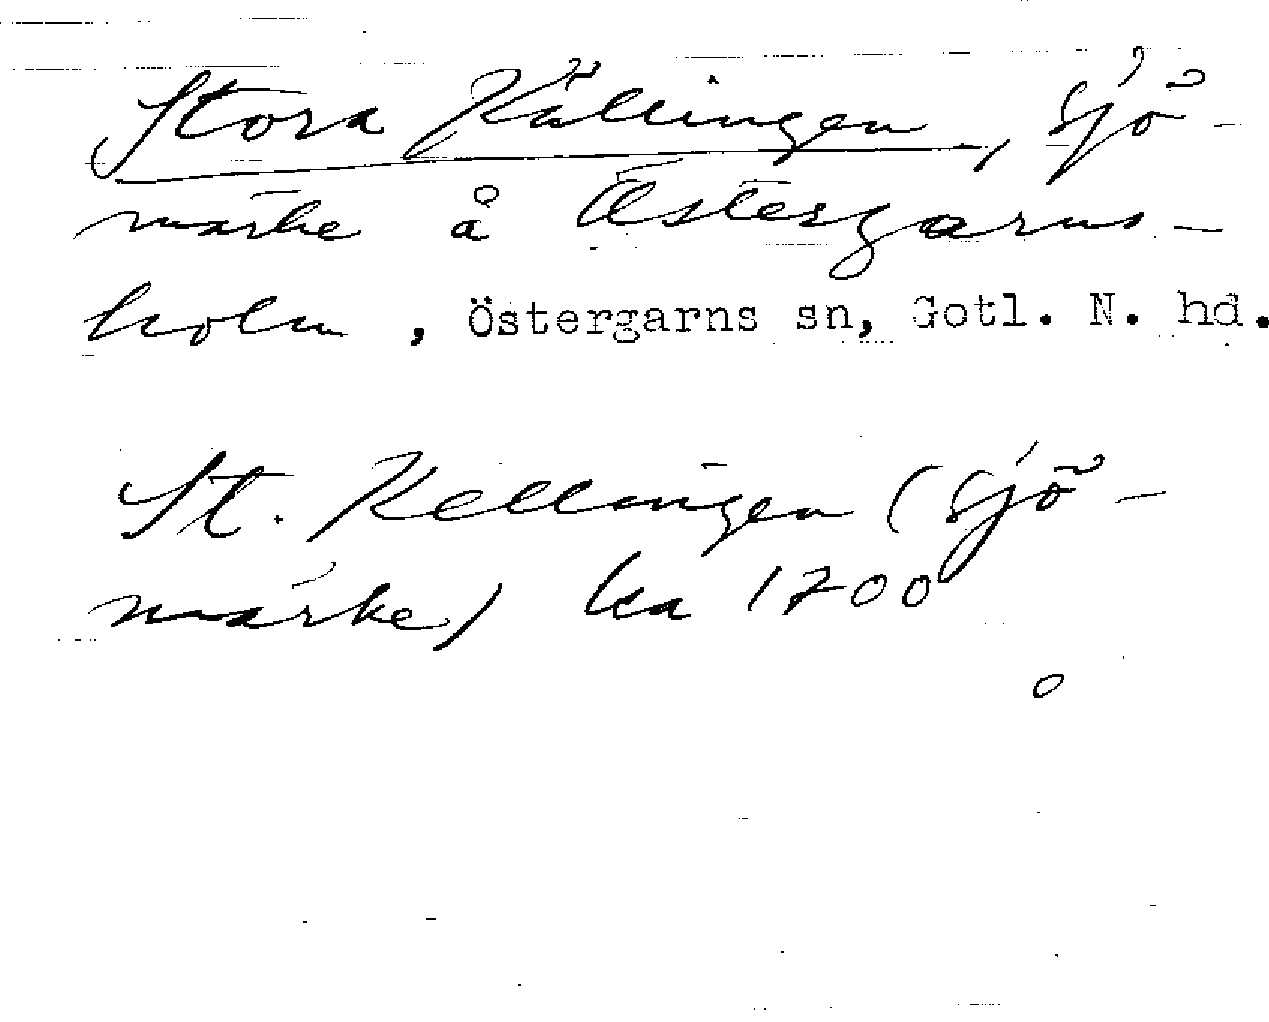 Stora Källingen, sjö-
märke å Östergarns-
holm, Östergarns sn, Gotl. N. hd.
St. Kellingen (sjö-
märke) ka 1700